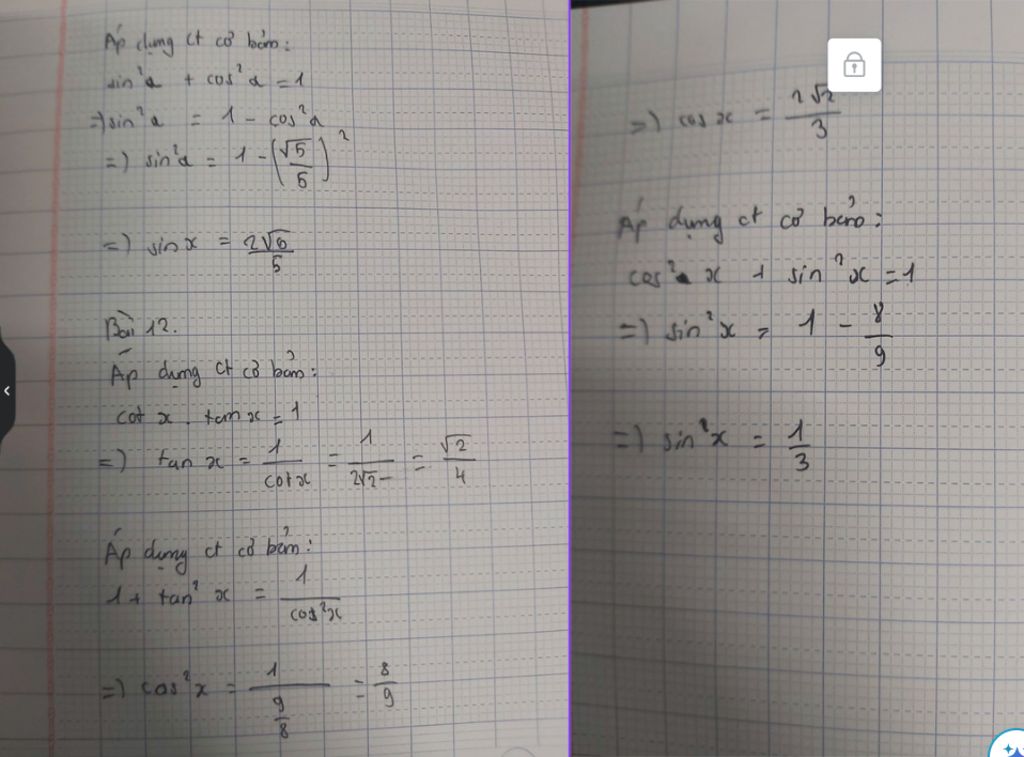 Áp dụng ct cơ bản:
sin²a + cos²a = 1
=) sin²a = 1 - cos²a
=) sin²a = 1 - (√5/5)²
=) sin x = 2√5/5
Bài 12.
Áp dụng ct cơ bản:
cot x . tan x = 1
=) tan x = 1/cot x = 1/2√2 = √2/4
Áp dụng ct cơ bản:
1 + tan² x = 1/cos²x
=) cos²x = 1/(9/8) = 8/9
=) cos x = 2√2/3
Áp dụng ct cơ bản:
cos² x + sin²x = 1
=) sin²x = 1 - 8/9
=) sin²x = 1/3